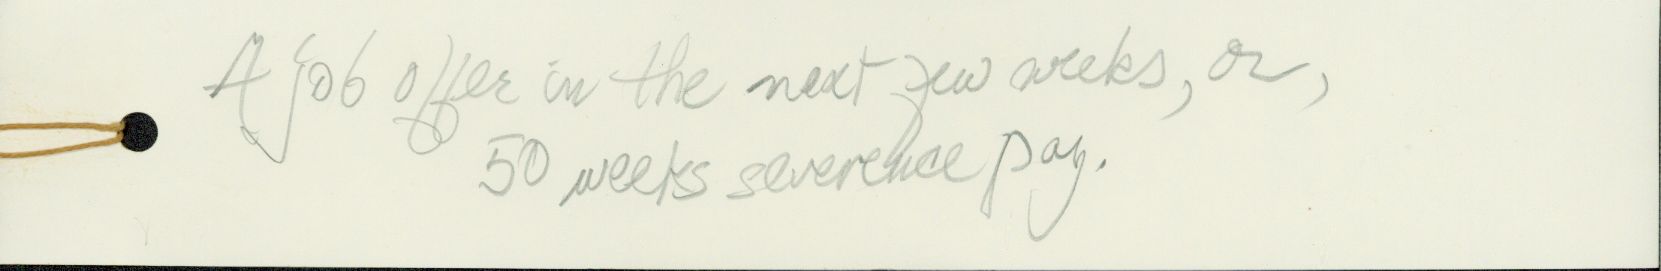 A job offer in the next few weeks, or,
50 weeks severence pay.